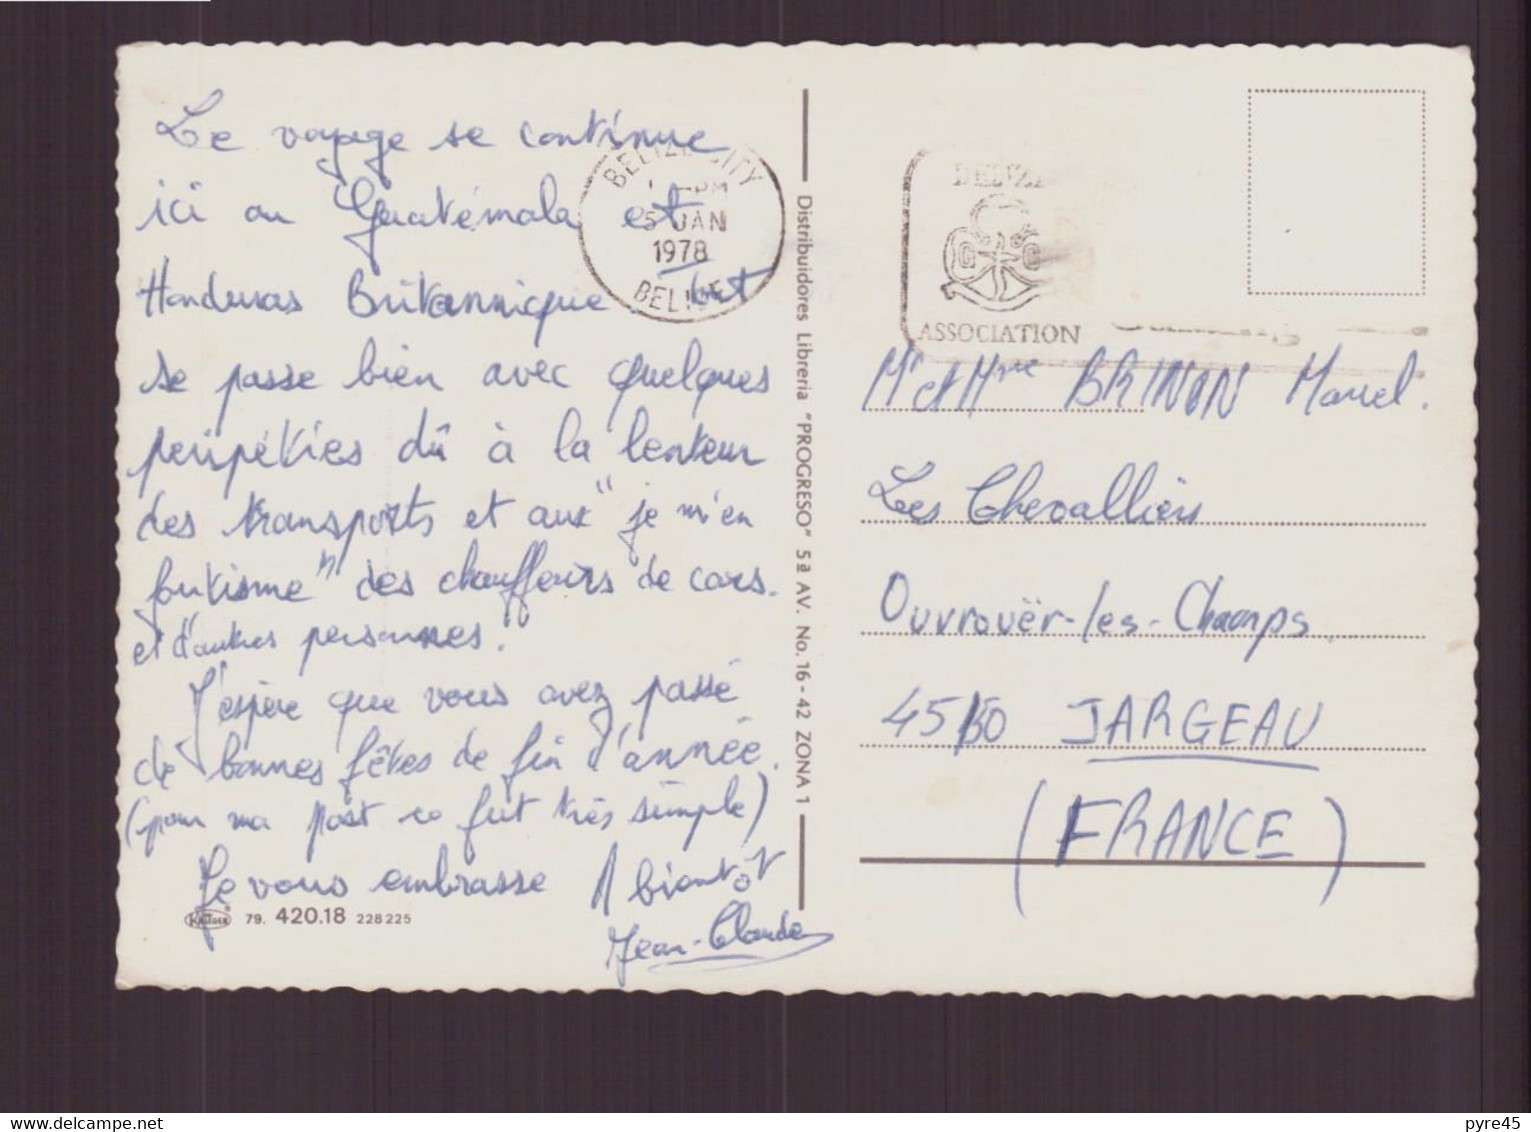 Le voyage se continue
ici au Guatémala et
Honduras Britannique. tout
se passe bien avec quelques
péripéties dû à la lenteur
des transports et aux "je m'en
foutisme" des chauffeurs de cars.
et "d'autres personnes."
J'espère que vous avez passé
de bonnes fêtes de fin d'année.
(pour ma part ce fut très simple)
Je vous embrasse A bientôt
Jean-Claude
79. 420.18 228225
BELIZE CITY
PM
5 JAN
1978
BELIZE
Distribuidores Libreria "PROGRESO" 5ª AV. No. 16-42 ZONA 1
BELIZE
G G
ASSOCIATION
Mr et Mme BRINON Marcel.
Les Chevalliers
Ouvrouër-les-Champs
45150 JARGEAU
(FRANCE)
pyre45